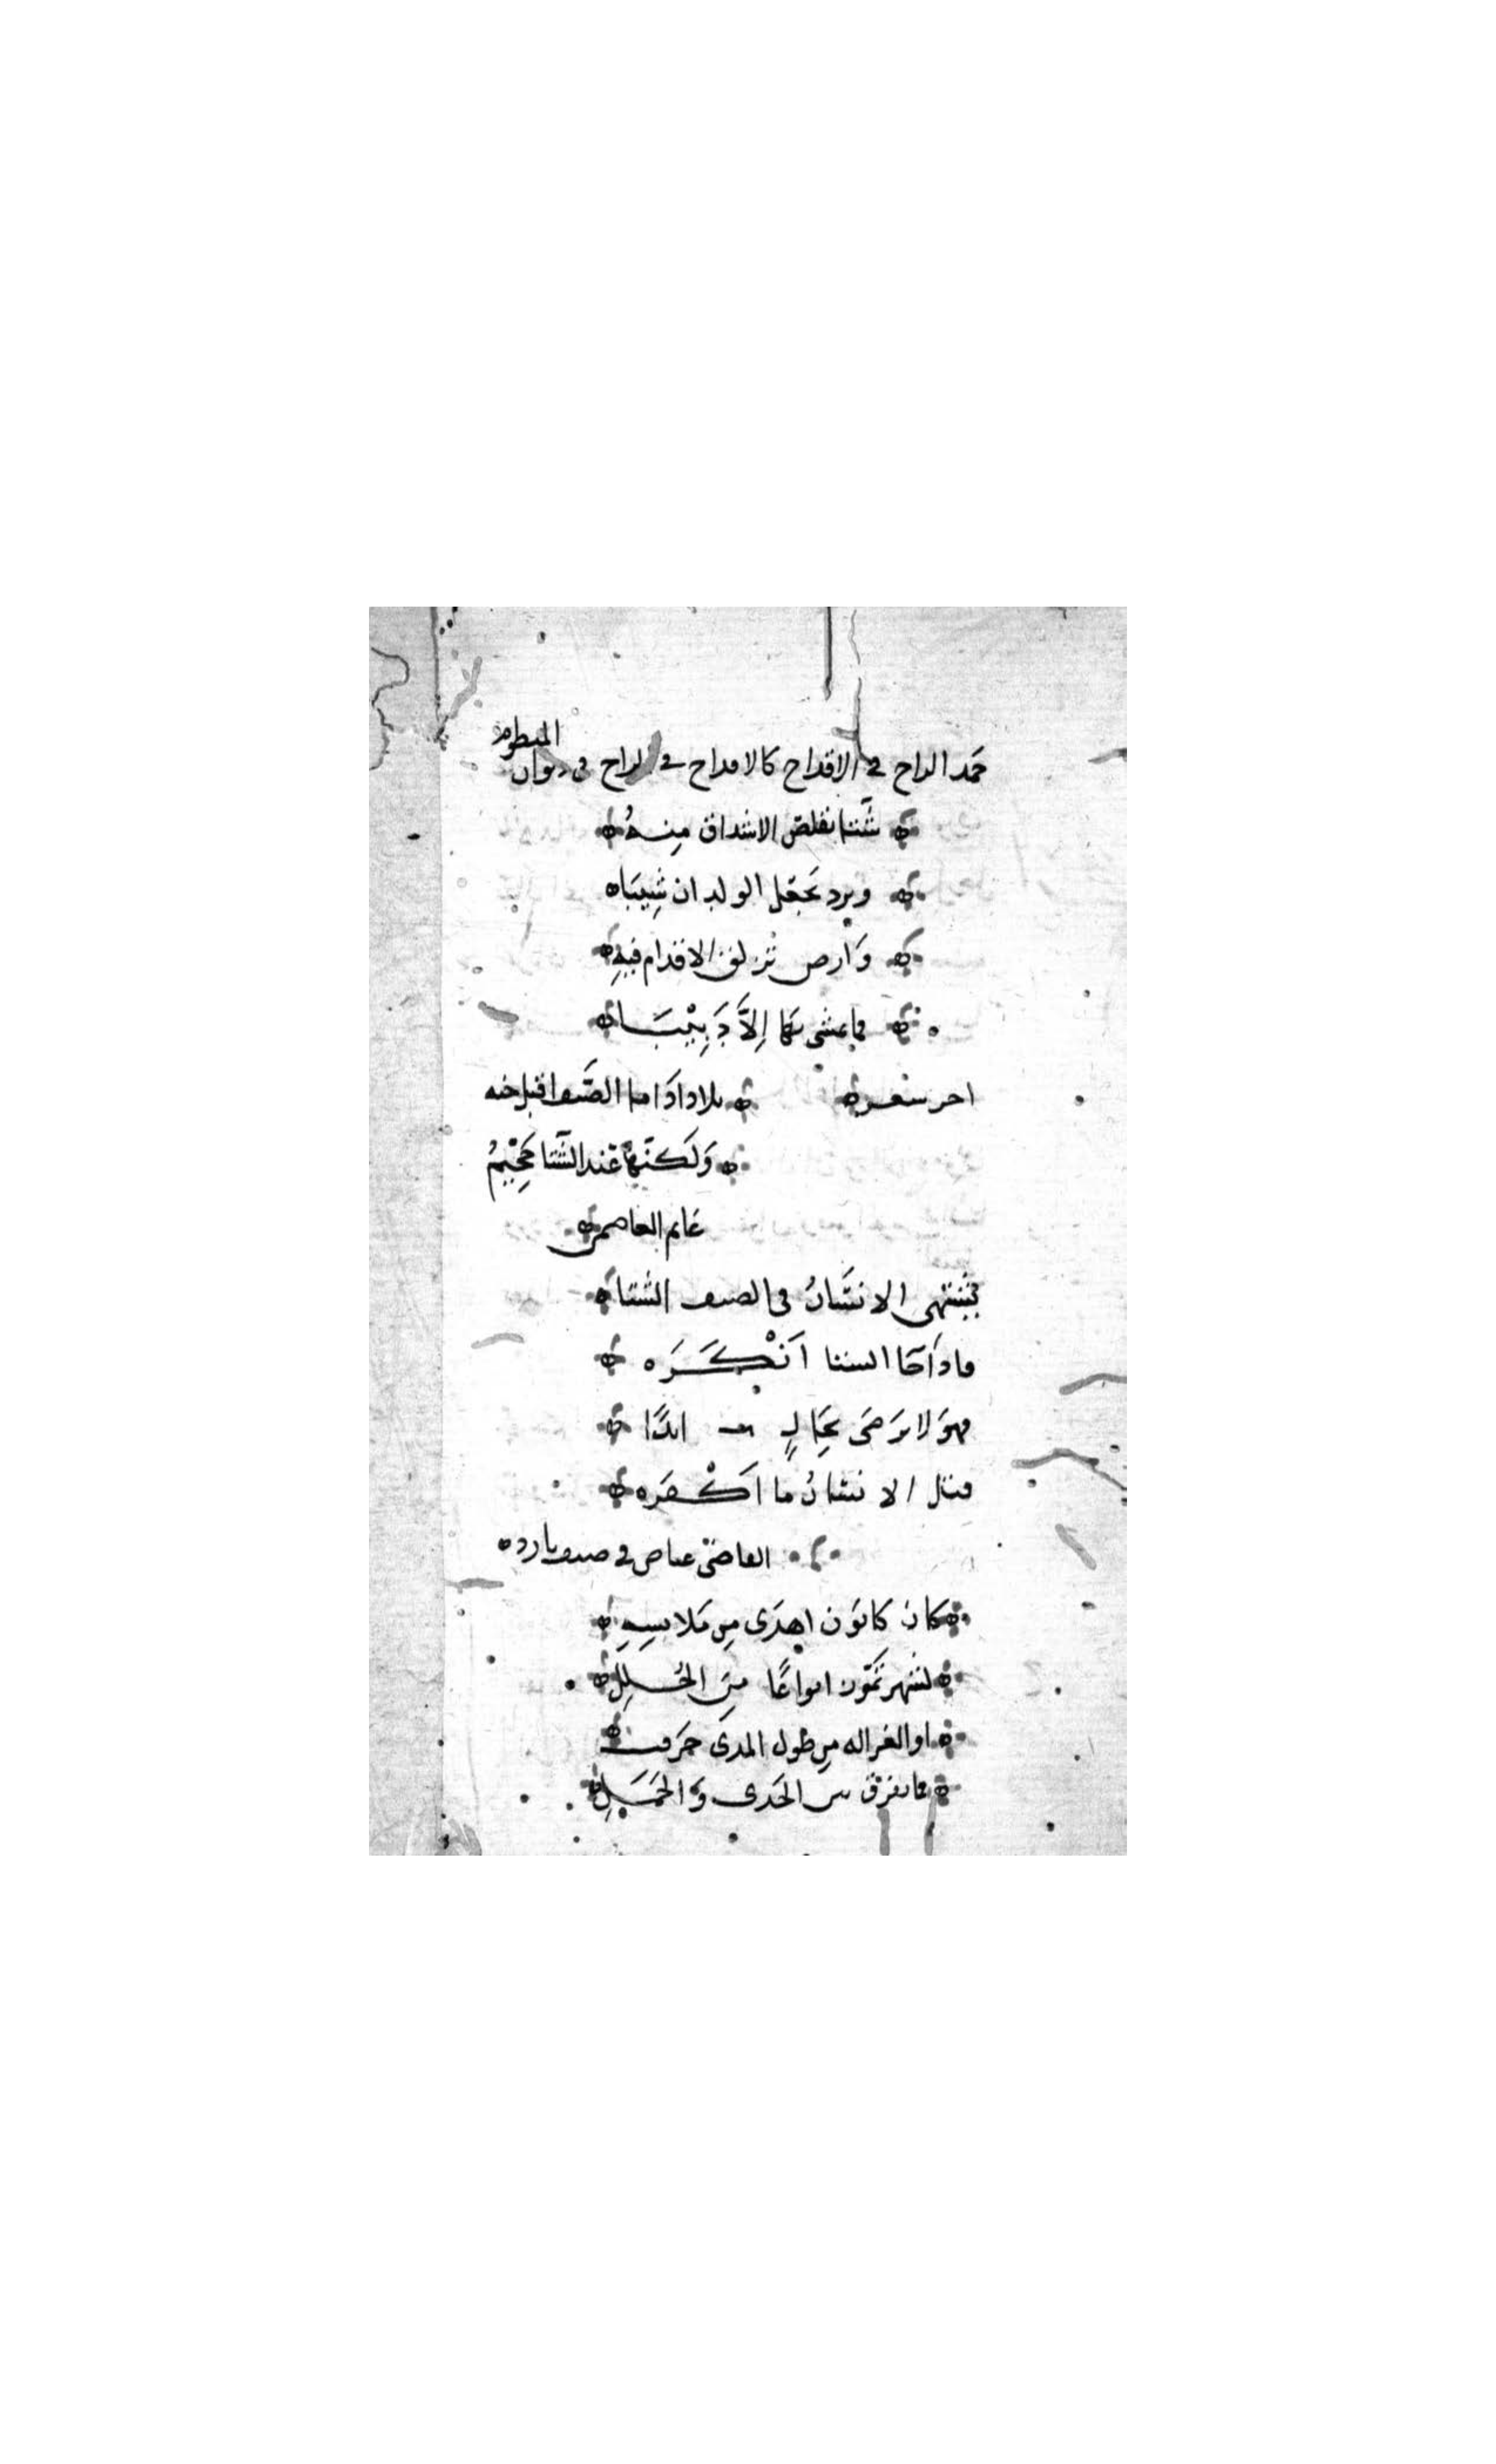 جمد الراح في الاقداح كالاقداح في الراح في ديوان المنظوم
شتا تقلص الاشداق منهُ
وبرد يَجعَل الولدان شِيبَا
وَارض تزلق الاقدام فيهِ
فما يمشي بهَا اِلاَّ دَبِيْبَا
اخر شعره بلاد اذَا ما الصَّيف اقبل جنه
وَلَكنّهَا عَند الشّتا جَحِيْمُ
غانم العاصمي
يشتهى الانسَانُ في الصيف الشتا
فاذَا جَا الشتا اَنْكَرَه
فهوَ لا يرَضَى بحَالٍ ابدًا
قتل الانسَانُ ما اَكْفَرَه
القاضي عياض في صيف بارد
كان كانوَن اهدَى مِن مَلابسِهِ
لشهر تمّوَز انواعًا مِنَ الحُلَلِ
او الغزاله من طول المدىَ خرَفت
فما تفرق بين الجَدى وَالحَمَلِ